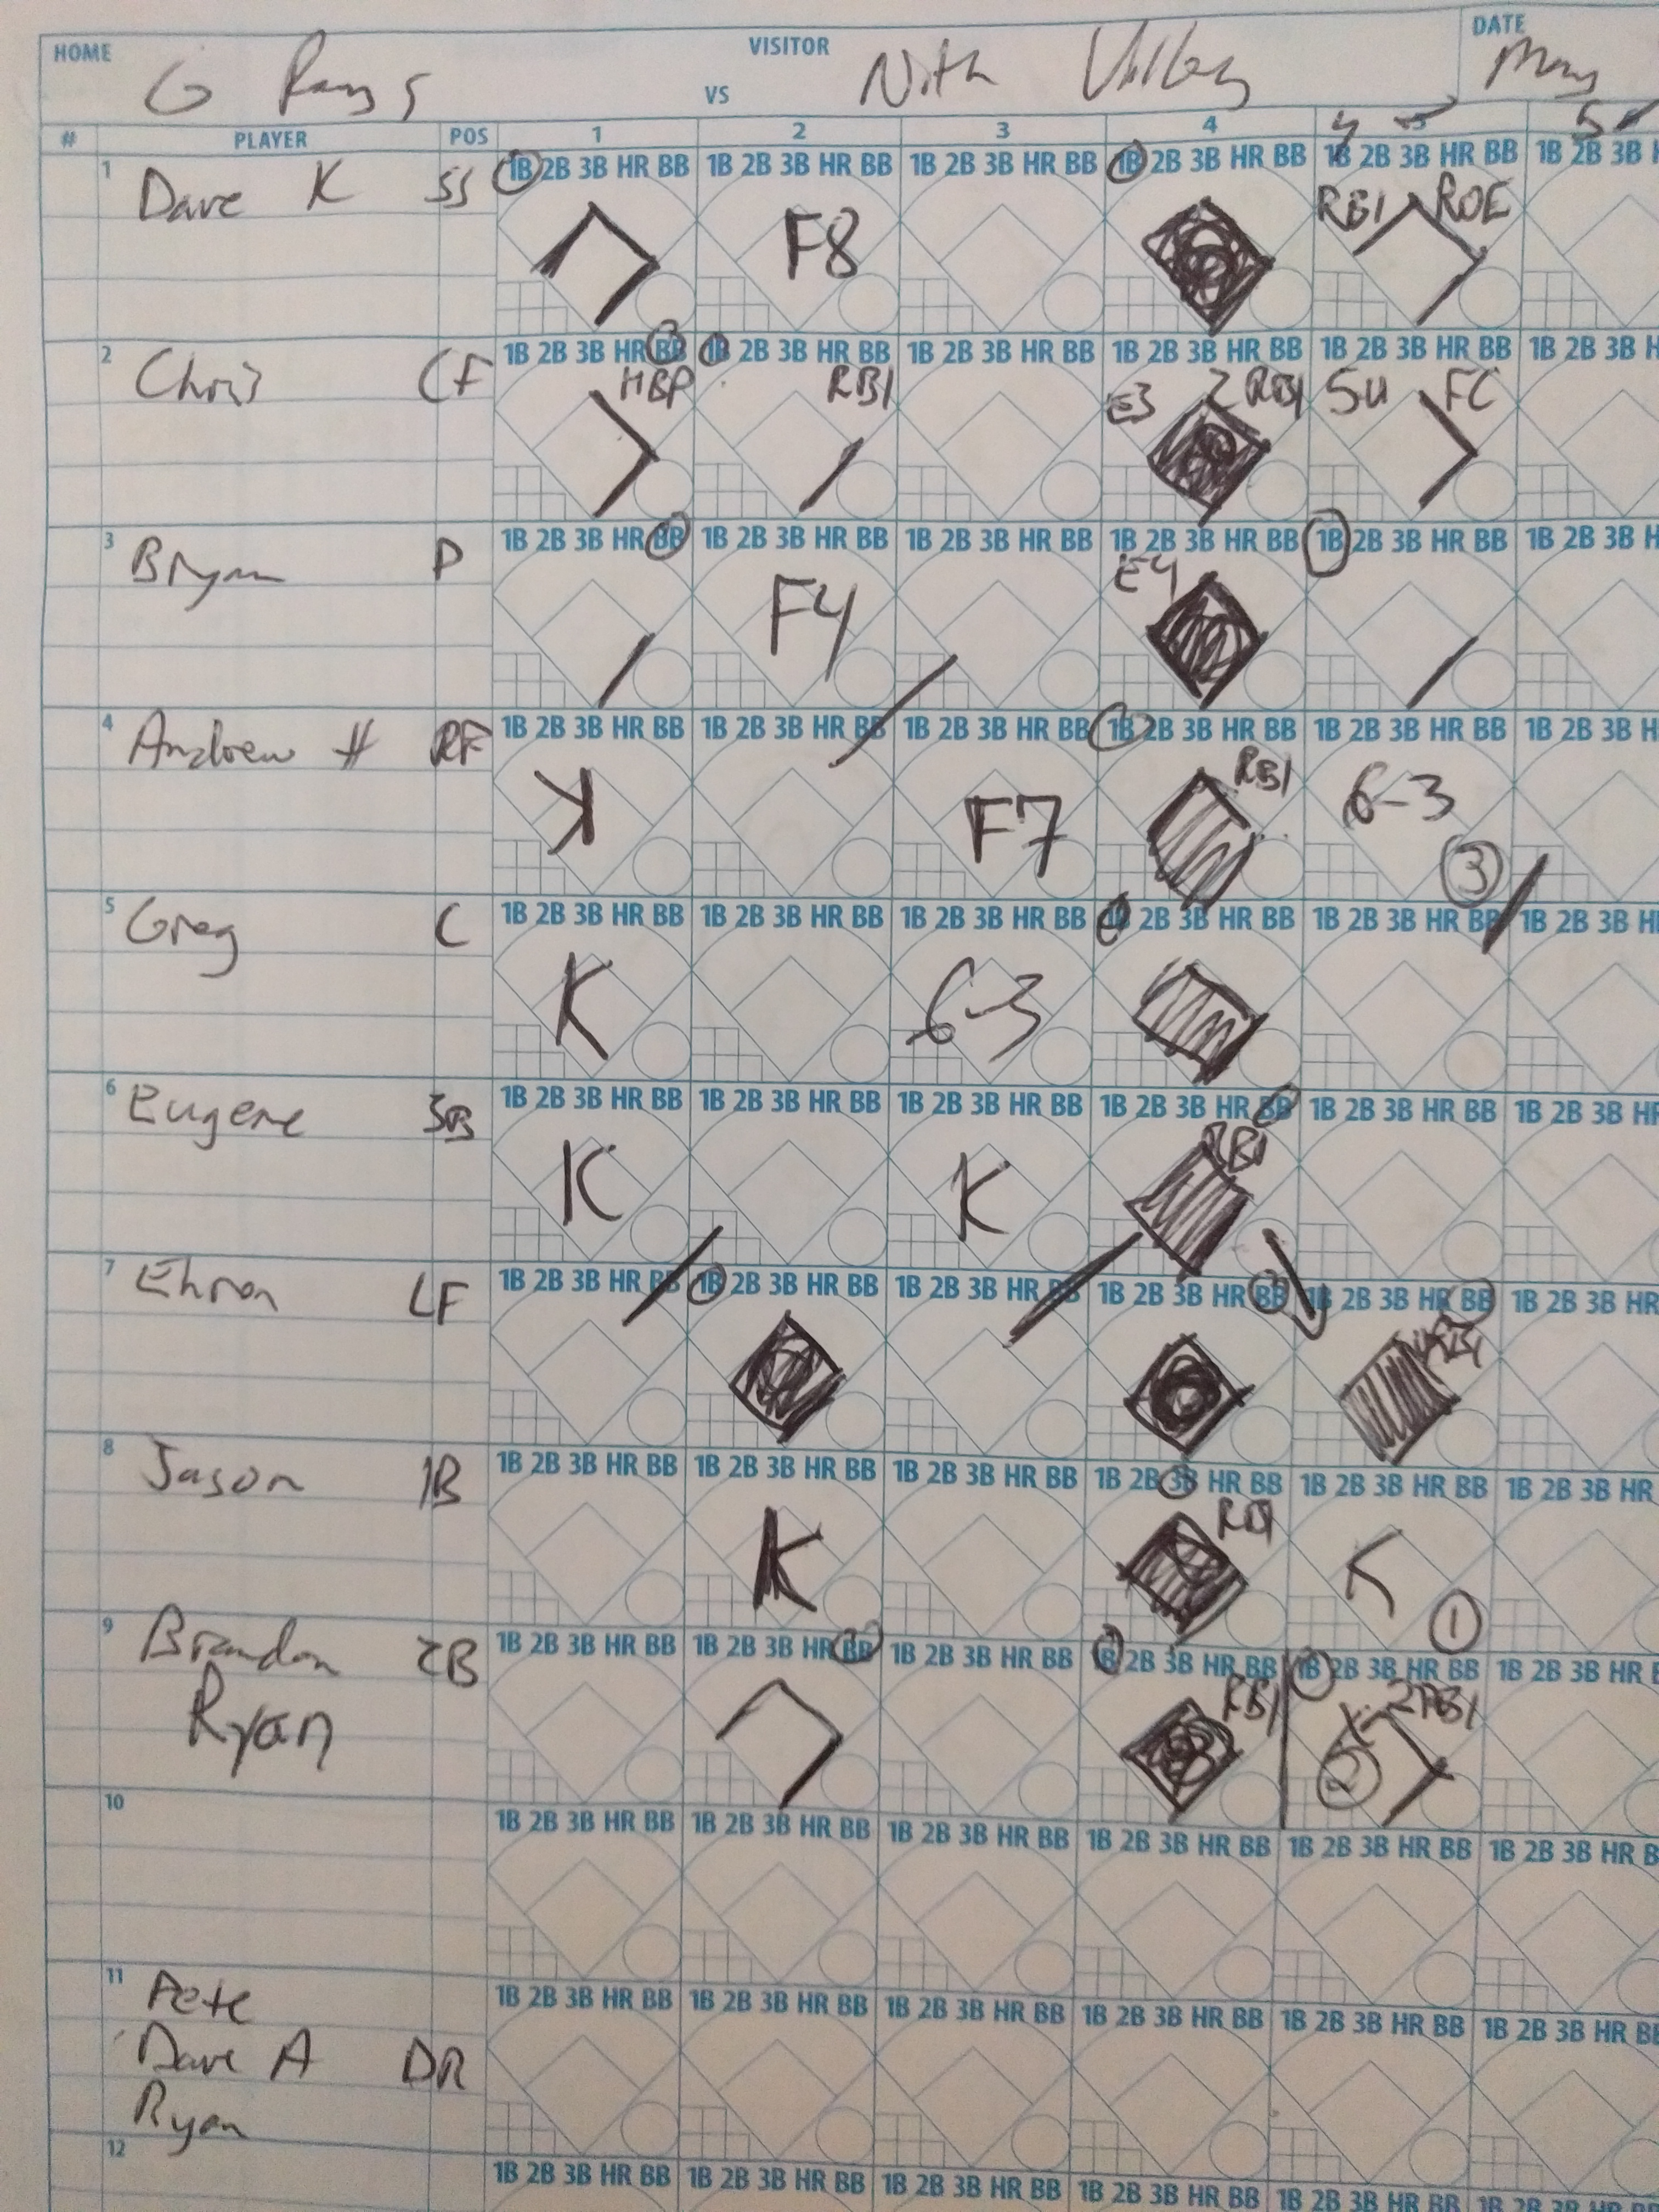 HOME VISITOR DATE
G Rays VS Nith Valley May
# PLAYER POS 1 2 3 4 4 5 5
1 Dave K SS 1B 2B 3B HR BB 1B 2B 3B HR BB 1B 2B 3B HR BB 1B 2B 3B HR BB 1B 2B 3B HR BB 1B 2B 3B H
F8 RBI ROE
2 Chris CF 1B 2B 3B HR BB 1B 2B 3B HR BB 1B 2B 3B HR BB 1B 2B 3B HR BB 1B 2B 3B HR BB 1B 2B 3B H
HBP RBI E3 2 RBI 5U FC
3 Bryan P 1B 2B 3B HR BB 1B 2B 3B HR BB 1B 2B 3B HR BB 1B 2B 3B HR BB 1B 2B 3B HR BB 1B 2B 3B H
F4 E4
4 Andrew H RF 1B 2B 3B HR BB 1B 2B 3B HR BB 1B 2B 3B HR BB 1B 2B 3B HR BB 1B 2B 3B HR BB 1B 2B 3B H
K F7 RBI 6-3 3
5 Greg C 1B 2B 3B HR BB 1B 2B 3B HR BB 1B 2B 3B HR BB 1B 2B 3B HR BB 1B 2B 3B HR BB 1B 2B 3B HI
K 6-3
6 Eugene 3B 1B 2B 3B HR BB 1B 2B 3B HR BB 1B 2B 3B HR BB 1B 2B 3B HR BB 1B 2B 3B HR BB 1B 2B 3B HR
K K RBI
7 Ehron LF 1B 2B 3B HR BB 1B 2B 3B HR BB 1B 2B 3B HR BB 1B 2B 3B HR BB 1B 2B 3B HR BB 1B 2B 3B HR
8 Jason 1B 1B 2B 3B HR BB 1B 2B 3B HR BB 1B 2B 3B HR BB 1B 2B 3B HR BB 1B 2B 3B HR BB 1B 2B 3B HR
K RBI K 1
9 Brandon 2B 1B 2B 3B HR BB 1B 2B 3B HR BB 1B 2B 3B HR BB 1B 2B 3B HR BB 1B 2B 3B HR BB 1B 2B 3B HR B
Ryan RBI 2RBI 2
10 1B 2B 3B HR BB 1B 2B 3B HR BB 1B 2B 3B HR BB 1B 2B 3B HR BB 1B 2B 3B HR BB 1B 2B 3B HR B
11 Pete 1B 2B 3B HR BB 1B 2B 3B HR BB 1B 2B 3B HR BB 1B 2B 3B HR BB 1B 2B 3B HR BB 1B 2B 3B HR BB
Dave A DR
Ryan
12 1B 2B 3B HR BB 1B 2B 3B HR BB 1B 2B 3B HR BB 1B 2B 3B HR BB 1B 2B 3B HR BB